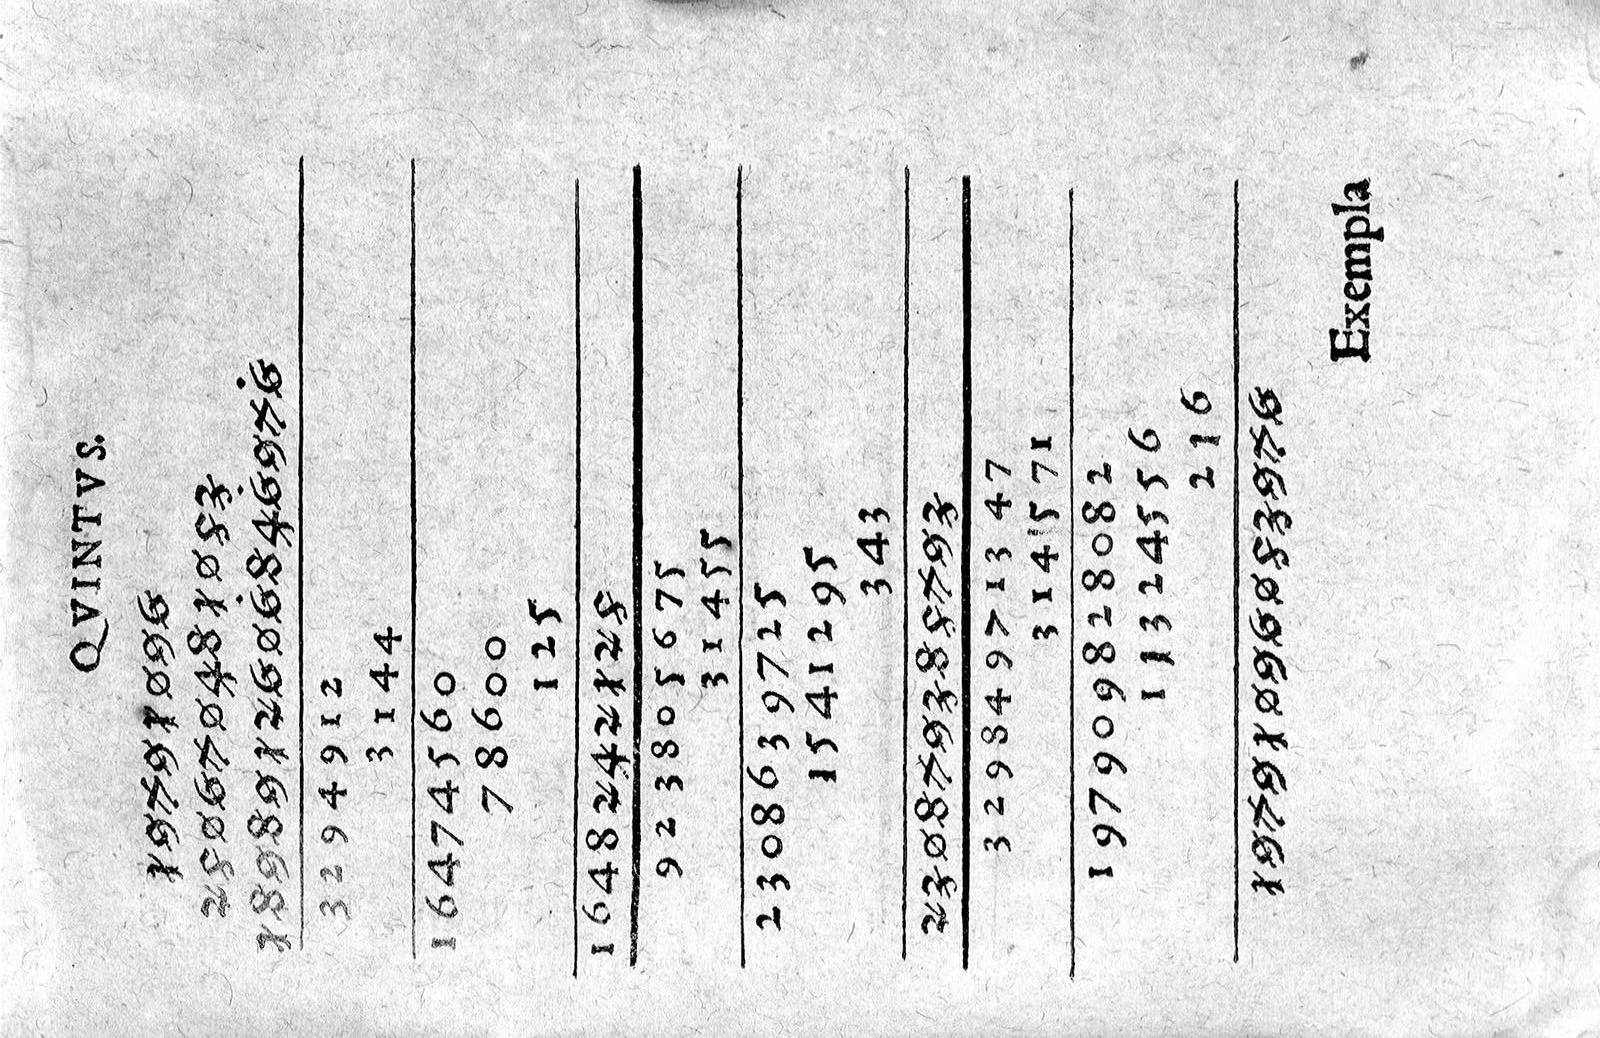 QVINTVS.
19791096
250670481053
1898912606846976
3294912
3144
16474560
78600
125
1648242125
923805675
31455
2308639725
1541295
343
230879385793
32984971347
314571
197909828082
11324556
216
19791096053976
Exempla